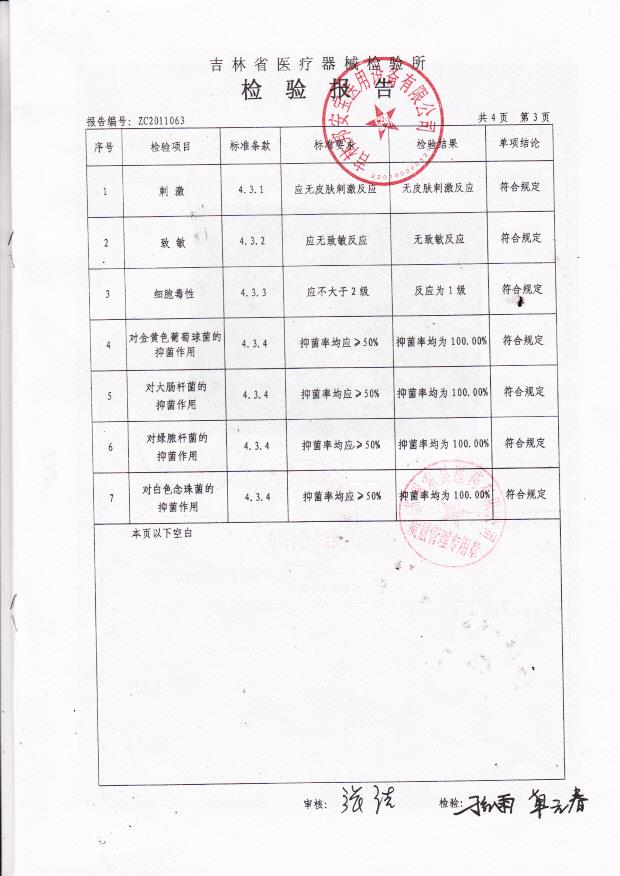 吉林省医疗器械检验所
检验报告
报告编号：ZC2011063 共4页 第3页
序号 检验项目 标准条款 标准要求 检验结果 单项结论
1 刺激 4.3.1 应无皮肤刺激反应 无皮肤刺激反应 符合规定
2 致敏 4.3.2 应无致敏反应 无致敏反应 符合规定
3 细胞毒性 4.3.3 应不大于2级 反应为1级 符合规定
4 对金黄色葡萄球菌的 4.3.4 抑菌率均应≥50% 抑菌率均为100.00% 符合规定
抑菌作用
5 对大肠杆菌的 4.3.4 抑菌率均应≥50% 抑菌率均为100.00% 符合规定
抑菌作用
6 对绿脓杆菌的 4.3.4 抑菌率均应≥50% 抑菌率均为100.00% 符合规定
抑菌作用
7 对白色念珠菌的 4.3.4 抑菌率均应≥50% 抑菌率均为100.00% 符合规定
抑菌作用
本页以下空白
质量管理专用章
审核： 检验：